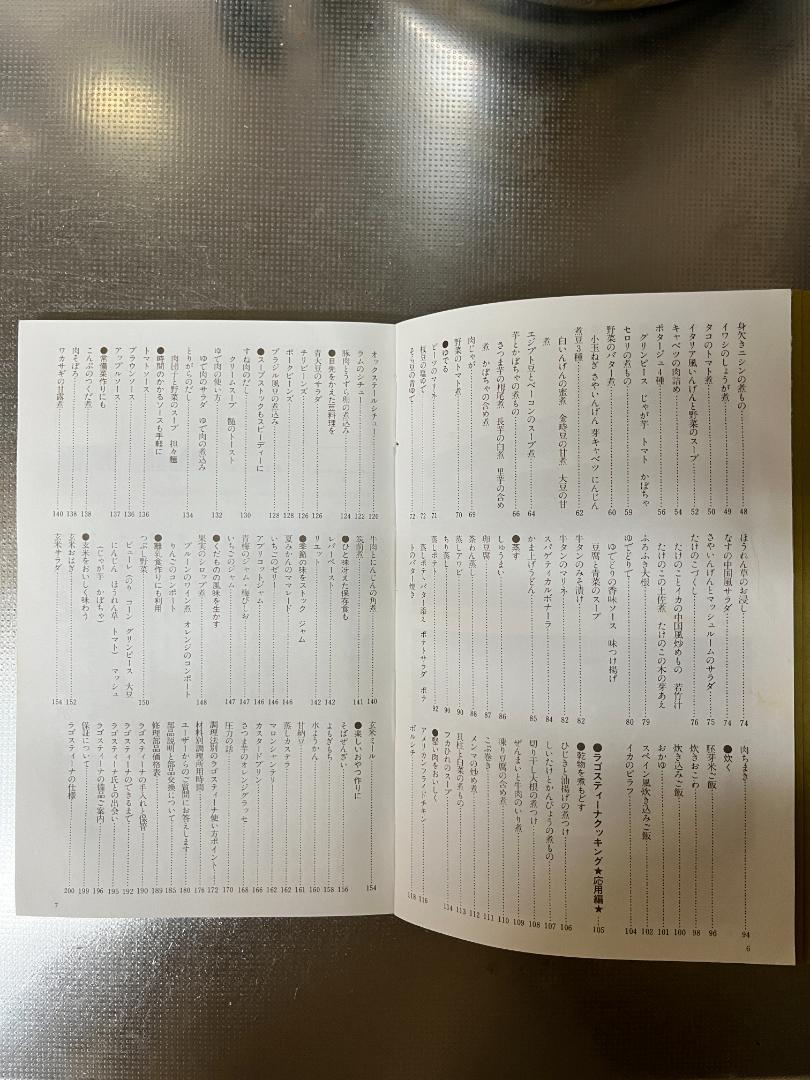 身欠きニシンの煮もの 48
イワシのしょうが煮 49
タコのトマト煮 50
イタリア風いんげんと野菜のスープ 52
キャベツの肉詰め 54
ポタージュ4種 56
グリンピース じゃが芋 トマト かぼちゃ
セロリの煮もの 59
野菜のバター煮 60
小玉ねぎ さやいんげん 芽キャベツ にんじん
煮豆3種 62
白いんげんの蜜煮 金時豆の甘煮 大豆の甘
煮
エジプト豆とベーコンのスープ煮 64
芋とかぼちゃの煮もの 66
さつま芋の甲尾煮 長芋の白煮 里芋の含め
煮 かぼちゃの含め煮
肉じゃが 69
野菜のトマト煮 70
●ゆでる
ビーツのマリネ 71
枝豆の塩ゆで 72
そら豆の青ゆで 72
ほうれん草のお浸し 74
なすの中国風サラダ 74
さやいんげんとマッシュルームのサラダ 75
たけのこづくし 76
たけのことイカの中国風炒めもの 若竹汁
たけのこの土佐煮 たけのこの木の芽あえ
ふろふき大根 79
ゆでどりで 80
ゆでどりの香味ソース 味つけ揚げ
豆腐と青菜のスープ
牛タンのみそ漬け 82
牛タンのマリネ 82
スパゲティカルボナーラ 84
かま上げうどん 85
●蒸す
しゅうまい 86
卵豆腐 87
茶わん蒸し 86
蒸しアワビ 90
ちり蒸し 90
蒸しポテト 92
蒸しポテト・バター添え ポテトサラダ ポテ
トのバター焼き
肉ちまき 94
●炊く
胚芽米ご飯 96
炊きおこわ 98
炊き込みご飯 100
おかゆ 101
スペイン風炊き込みご飯 102
イカのピラフ 104
●ラゴスティーナクッキング★応用編★ 105
●乾物を煮もどす
ひじきと油揚げの煮つけ 106
しいたけとかんぴょうの煮もの 107
切り干し大根の煮つけ 108
ぜんまいと牛肉のいり煮 109
凍り豆腐の含め煮 110
こぶ巻き 111
メンマの炒め煮 112
貝柱と白菜の煮もの 113
フカひれのスープ 114
●堅い肉をおいしく
アメリカンフライドチキン 116
ボルシチ 118
6
オックステールシチュー 120
ラムのシチュー 122
豚肉とうずら卵の煮込み 124
●目先をかえた豆料理を
青大豆のサラダ 126
チリビーンズ 126
ポークビーンズ 128
ブラジル風豆の煮込み 128
●スープストックもスピーディーに
すね肉のだし 130
クリームスープ 髄のトースト
ゆで肉の使い方 132
ゆで肉のサラダ ゆで肉の煮込み
とりがらのだし 134
肉団子と野菜のスープ 担々麺
●時間のかかるソースも手軽に
トマトソース 136
ブラウンソース 136
アップルソース 137
●常備菜作りにも
こんぶのつくだ煮 138
肉そぼろ 138
ワカサギの甘露煮 140
牛肉とにんじんの角煮 140
筑前煮 141
●ひと味冴えた保存食も
レバーペースト 142
リエット 142
●季節の味をストック ジャム
夏みかんのママレード 146
いちごのゼリー 146
アプリコットジャム 146
青梅のジャム・梅びしお 147
いちごのジャム 147
●くだものの風味を生かす
果実のシロップ煮 148
プルーンのワイン煮 オレンジのコンポート
りんごのコンポート
●離乳食作りにも利用
つぶし野菜 150
ピューレ(のり コーン グリンピース 大豆
にんじん ほうれん草 トマト) マッシュ
(じゃが芋 かぼちゃ)
●玄米をおいしく味わう
玄米おはぎ 152
玄米サラダ 154
玄米ミール 154
●楽しいおやつ作りに
そばぜんざい 156
よもぎもち 158
水ようかん 160
甘納豆 161
蒸しカステラ 162
マロンシャンテリ 162
カスタードプリン 166
さつま芋のオレンジグラッセ 168
圧力の話 170
調理法別のラゴスティーナ使い方ポイント 172
材料別調理所用時間 176
ユーザーからのご質問にお答えします 180
部品説明と部品交換について 185
修理部品価格表 189
ラゴスティーナの手入れと保管 190
ラゴスティーナのできるまで 192
ラゴスティーナ氏との出会い 195
ラゴスティーナの備品ご案内 196
保証について 199
ラゴスティーナの仕様 200
7